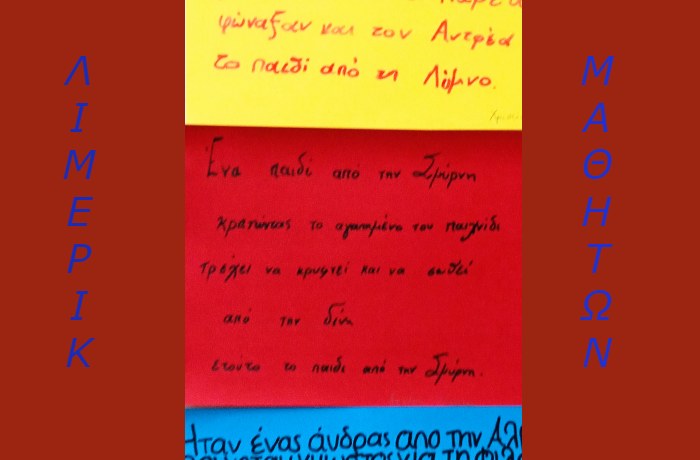 ΛΙΜΕΡΙΚ
φώναξαν και τον Αντρέα
το παιδί από τη Λήμνο.
Ένα παιδί από την Σμύρνη
κρατώντας το αγαπημένο του παιχνίδι
τρέχει να κρυφτεί και να σωθεί
από την δίνη
ετούτο το παιδί από την Σμύρνη.
Ήταν ένας άνδρας απο την Αλ
ΜΑΘΗΤΩΝ